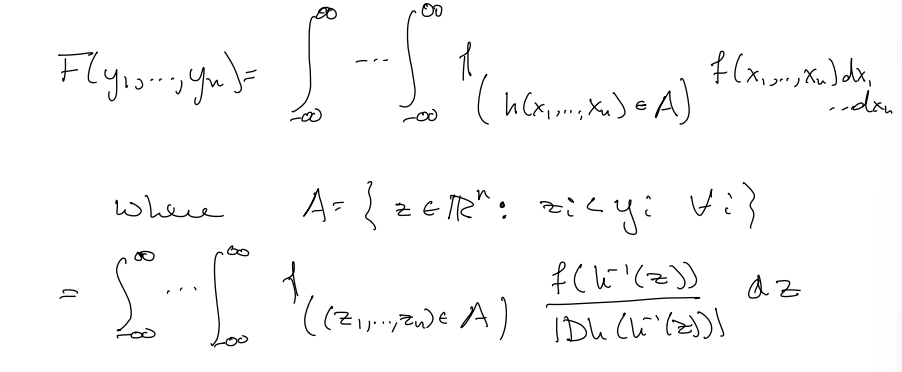 F(y₁,...,yₙ)= ∫_{-∞}^{∞} ... ∫_{-∞}^{∞} 1_{(h(x₁,...,xₙ) ∈ A)} f(x₁,...,xₙ)dx₁...dxₙ
where A= { z ∈ ℝⁿ : zᵢ < yᵢ ∀ i }
= ∫_{-∞}^{∞} ... ∫_{-∞}^{∞} 1_{((z₁,...,zₙ) ∈ A)} f(h⁻¹(z)) / |Dh(h⁻¹(z))| dz